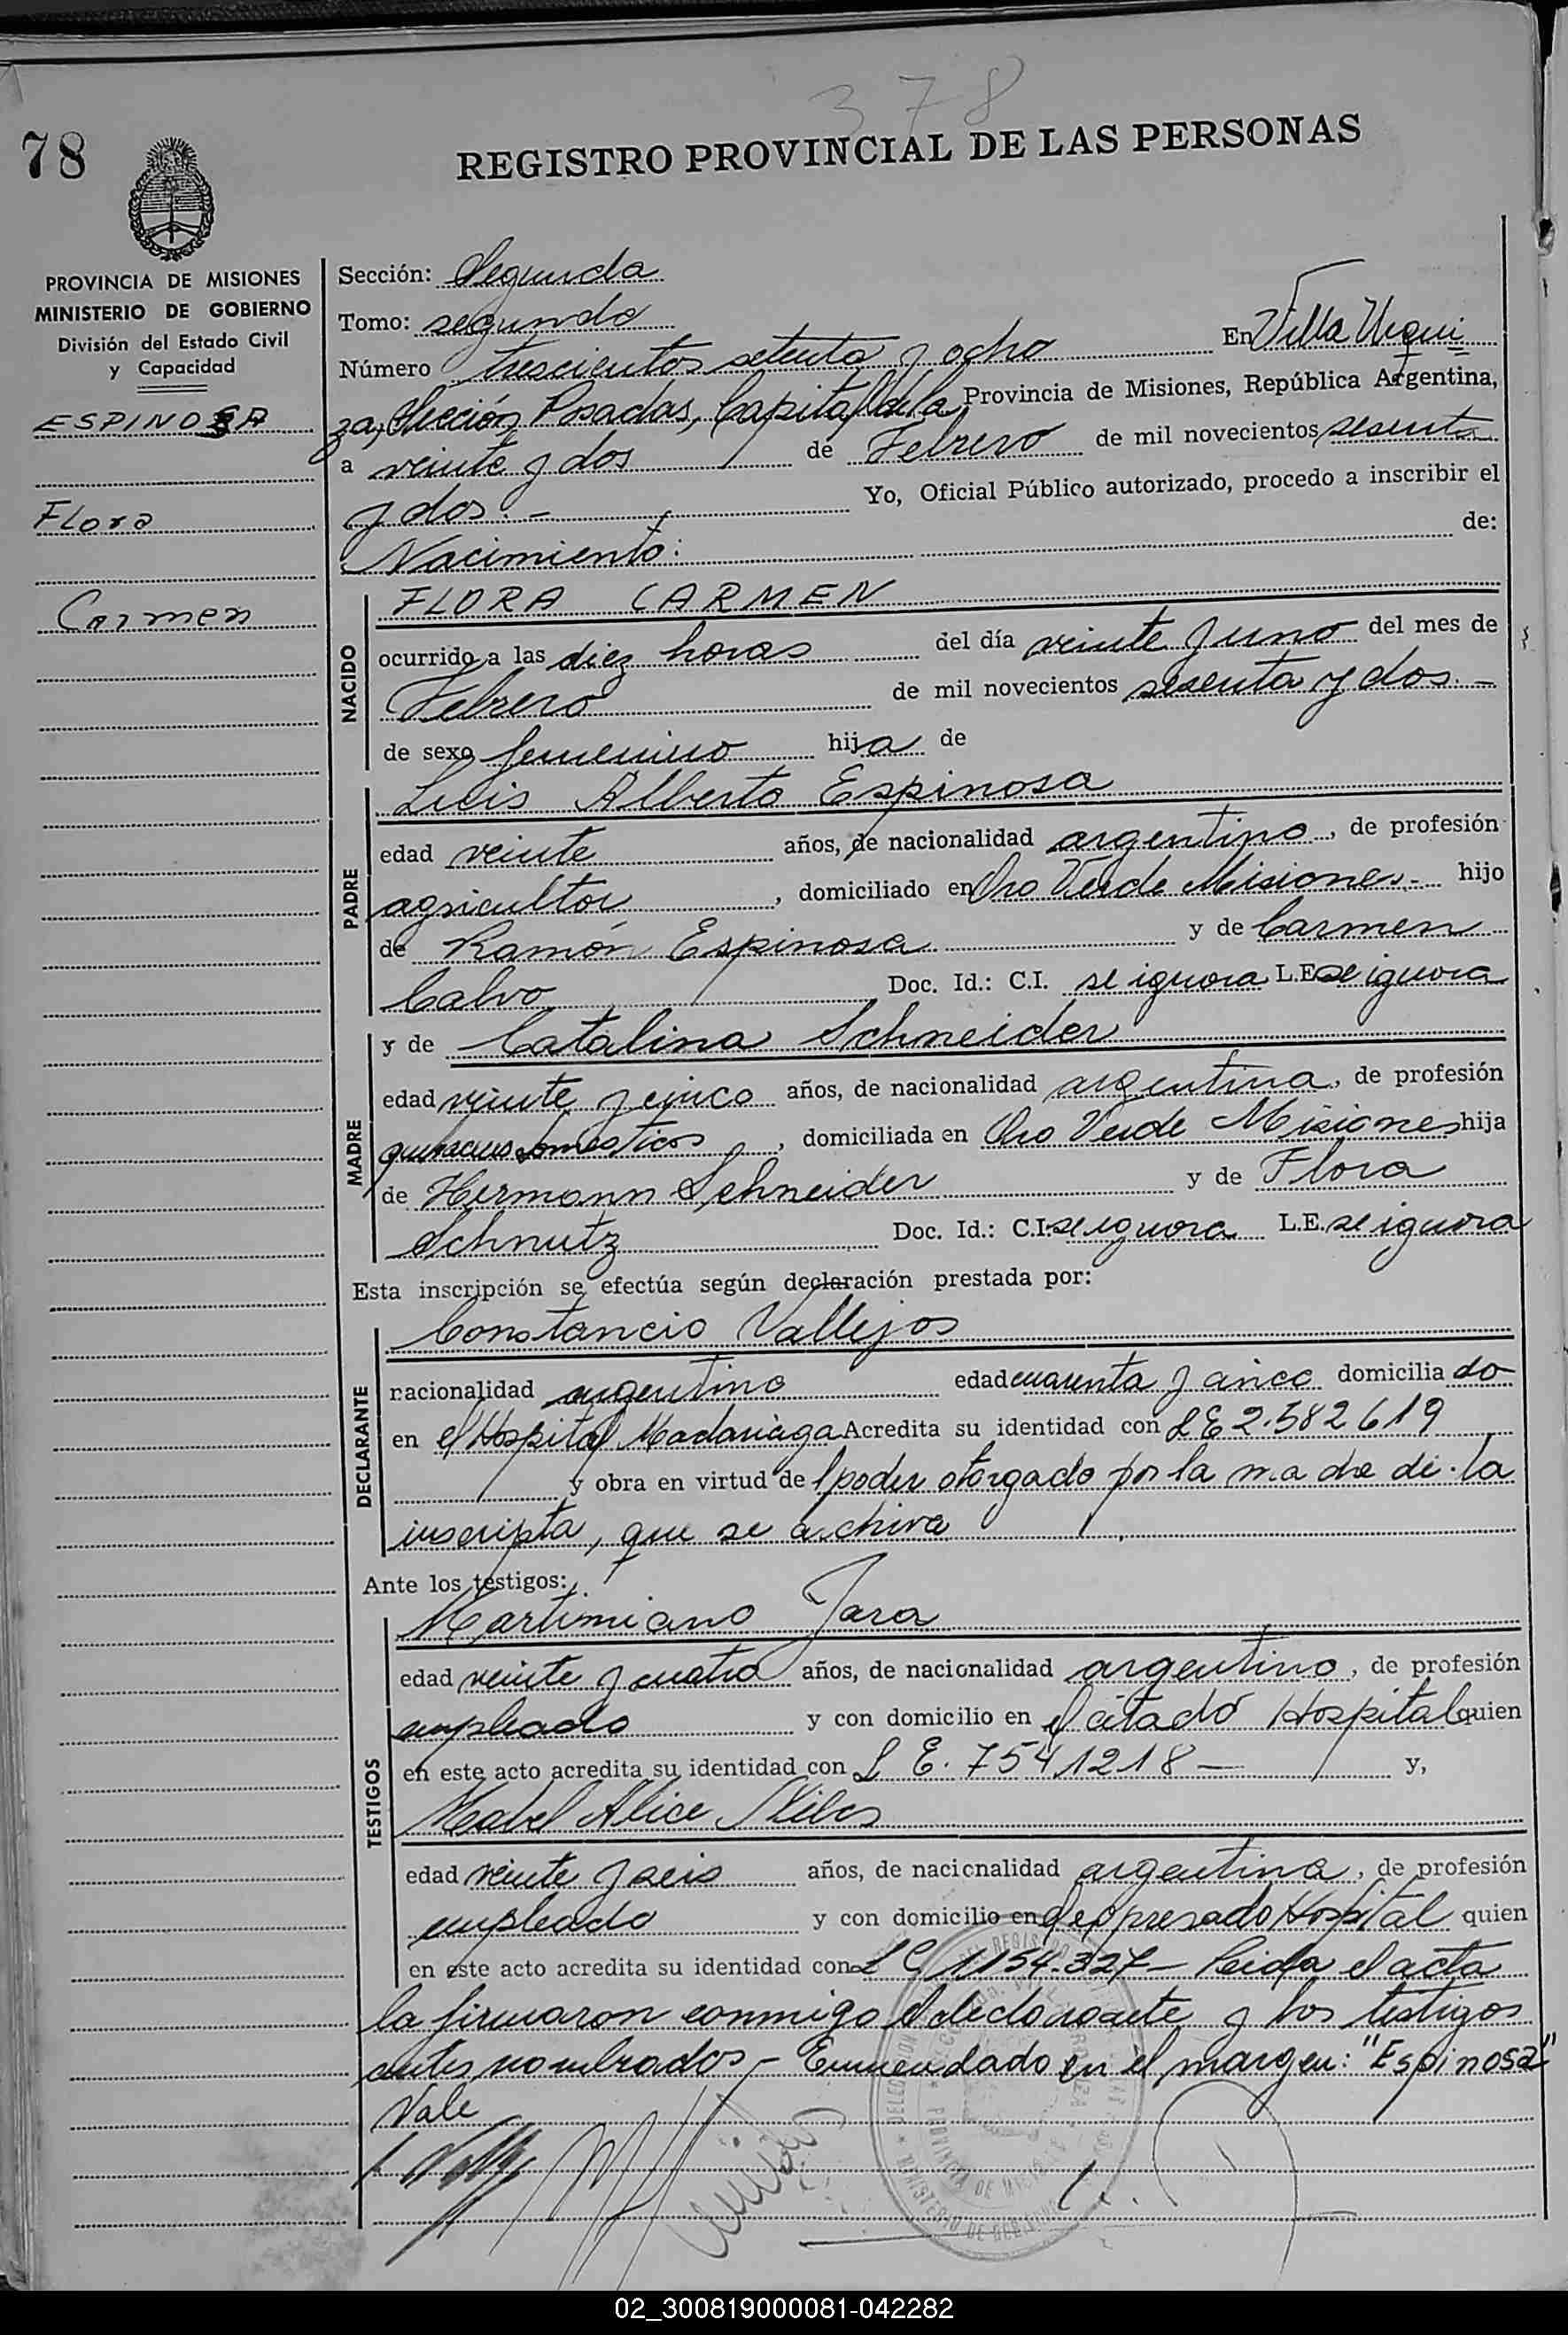 378
78
REGISTRO PROVINCIAL DE LAS PERSONAS
PROVINCIA DE MISIONES
MINISTERIO DE GOBIERNO
División del Estado Civil
y Capacidad
ESPINOSA
Flora
Carmen
Sección: Segunda
Tomo: segundo
Número trescientos setenta y ocho En Villa Urqui
za, Sección Posadas, Capital de la Provincia de Misiones, República Argentina,
a veinte y dos de Febrero de mil novecientos sesenta
y dos.- Yo, Oficial Público autorizado, procedo a inscribir el
Nacimiento: de:
NACIDO
FLORA CARMEN
ocurrido a las diez horas del día veinte y uno del mes de
Febrero de mil novecientos sesenta y dos.-
de sexo femenino hija de
PADRE
Luis Alberto Espinosa
edad veinte años, de nacionalidad argentino, de profesión
agricultor, domiciliado en Oro Verde Misiones.- hijo
de Ramón Espinosa y de Carmen
Calvo Doc. Id.: C.I. se ignora L.E. se ignora
MADRE
y de Catalina Schneider
edad veinte y cinco años, de nacionalidad argentina, de profesión
quehaceres domesticos, domiciliada en Oro Verde Misiones hija
de Hermann Schneider y de Flora
Schnutz Doc. Id.: C.I. se ignora L.E. se ignora
Esta inscripción se efectúa según declaración prestada por:
DECLARANTE
Constancio Vallejos
nacionalidad argentino edad cuarenta y cinco domiciliado
en el Hospital Madariaga Acredita su identidad con L E 2.582619
y obra en virtud del poder otorgado por la madre de la
inscripta, que se archiva
Ante los testigos:
TESTIGOS
Martimiano Jara
edad veinte y cuatro años, de nacionalidad argentino, de profesión
empleado y con domicilio en el citado Hospital quien
en este acto acredita su identidad con L E. 7541218 — y,
Mabel Alice
edad veinte y seis años, de nacionalidad argentina, de profesión
empleado y con domicilio en el expresado Hospital quien
en este acto acredita su identidad con L C 1154.327 - Leida el acta
la firmaron conmigo el declarante y los testigos
antes nombrados.- Enmendado en el margen: "Espinosa"
Vale
02_300819000081-042282